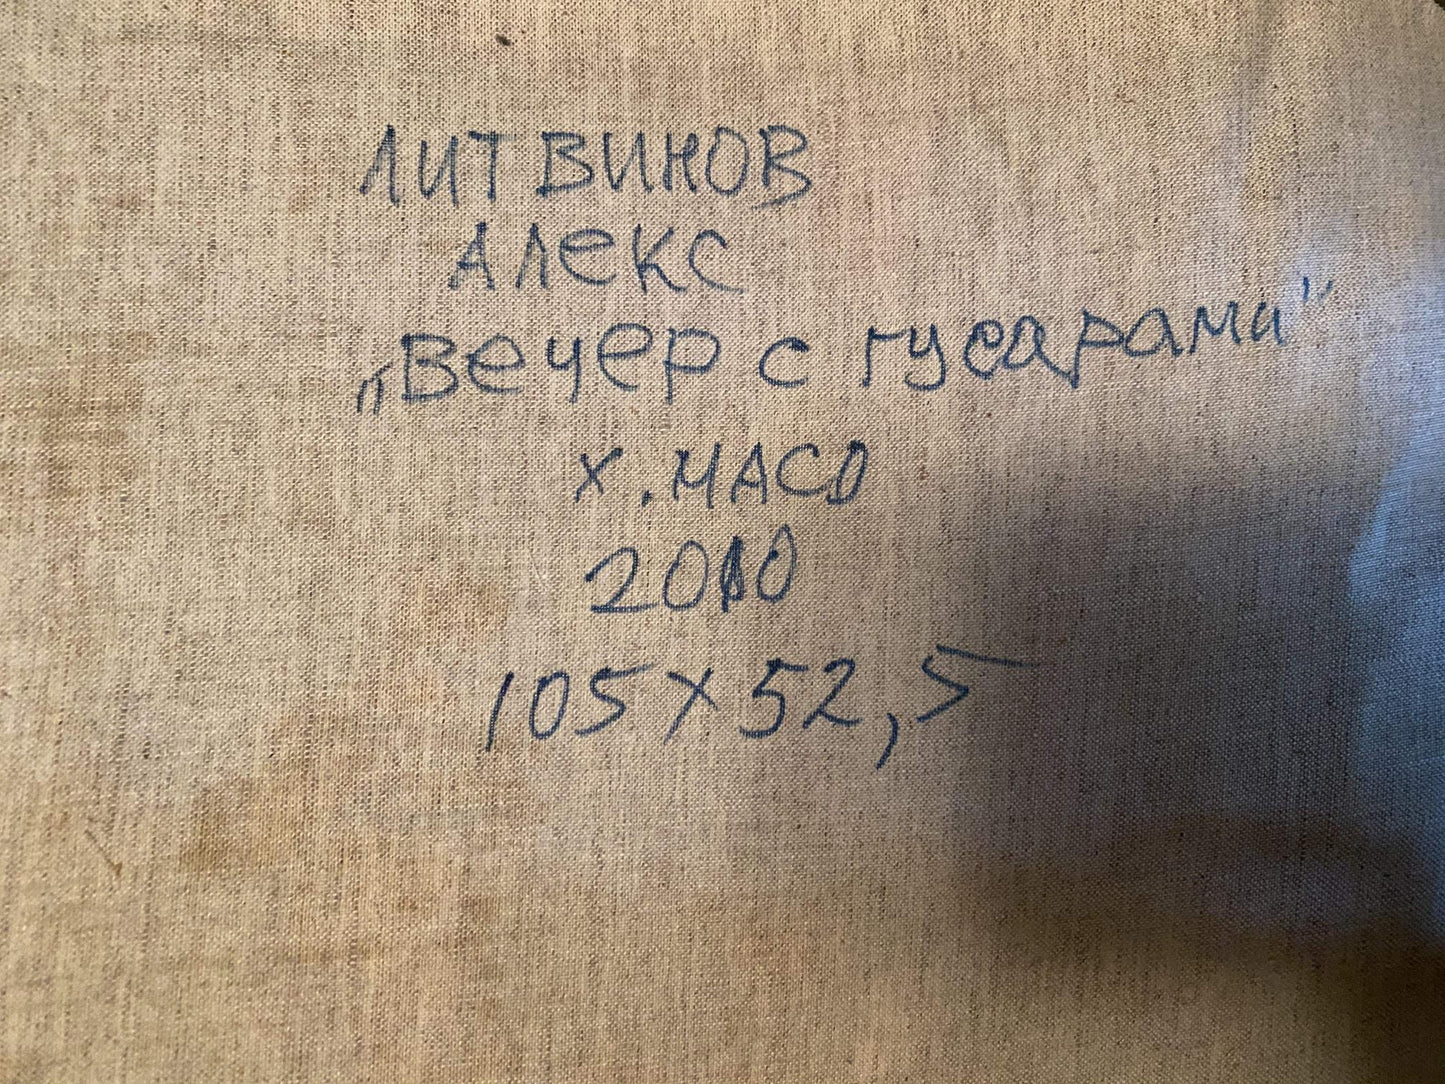 ЛИТВИНОВ
АЛЕКС
„Вечер с гусарами"
х. МАСО
2010
105х52,5